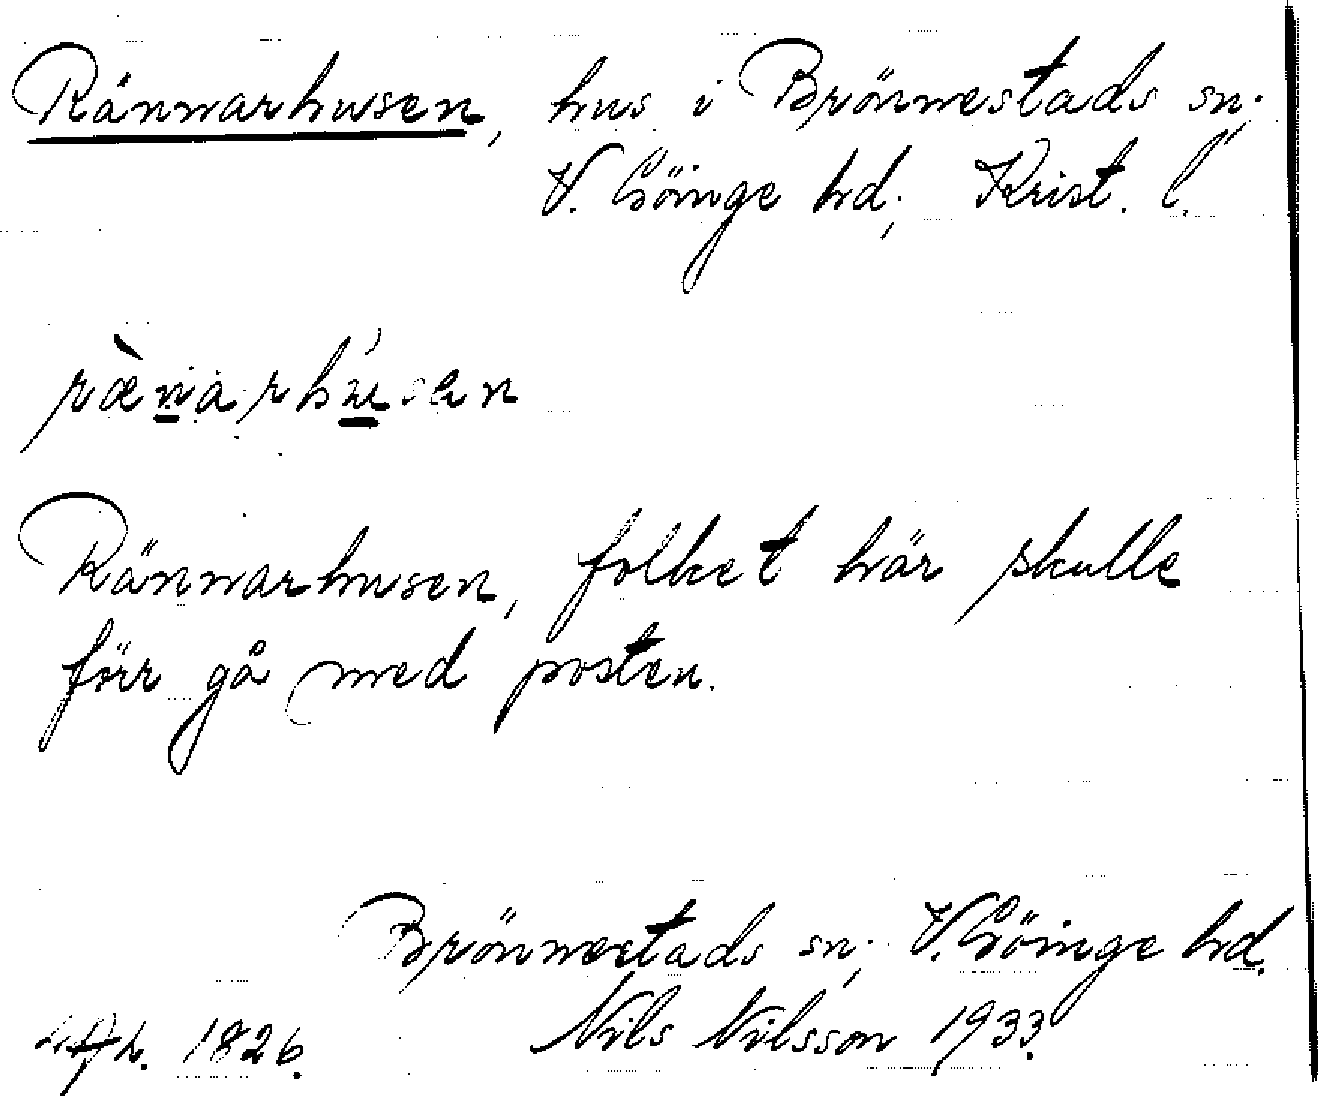 Rännarhusen, hus i Brönnestads sn;
V. Göinge hd; Krist. l.
ræ̀narhúsen
Rännarhusen, folket här skulle
förr gå med posten.
Brönnestads sn; V. Göinge hd.
1826. Nils Nilsson 1933.